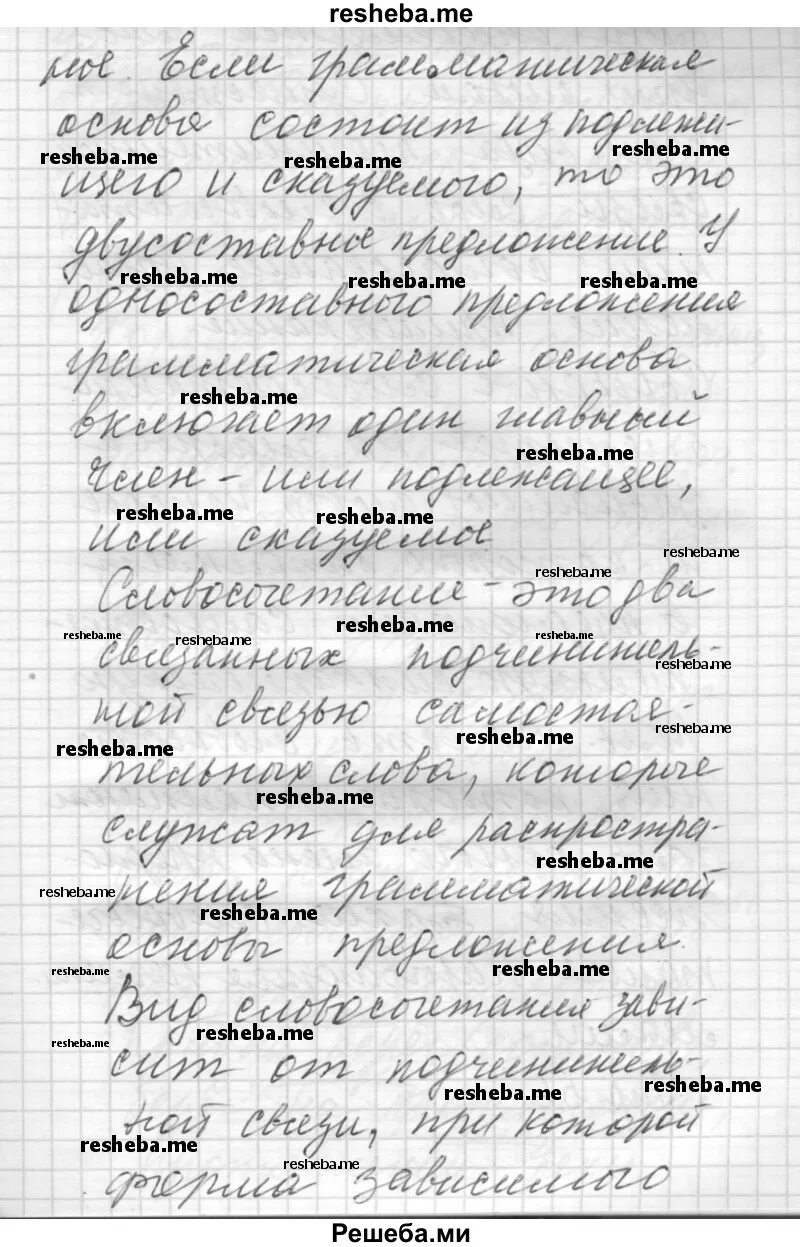 resheba.me
ное. Если грамматическая
основа состоит из подлежа-
resheba.me resheba.me resheba.me
щего и сказуемого, то это
двусоставное предложение. У
resheba.me resheba.me resheba.me
односоставного предложения
грамматическая основа
resheba.me
включает один главный
resheba.me
член – или подлежащее,
resheba.me resheba.me
или сказуемое.
resheba.me
resheba.me
Словосочетание – это два
resheba.me resheba.me resheba.me resheba.me
связанных подчинитель-
resheba.me
ной связью самостоя-
resheba.me resheba.me resheba.me
тельных слова, которые
resheba.me
служат для распростра-
resheba.me
resheba.me нения грамматической
resheba.me
основы предложения.
resheba.me resheba.me
Вид словосочетания зави-
resheba.me resheba.me
сит от подчинитель-
resheba.me resheba.me
ной связи, при которой
resheba.me resheba.me
форма зависимого
Решеба.ми